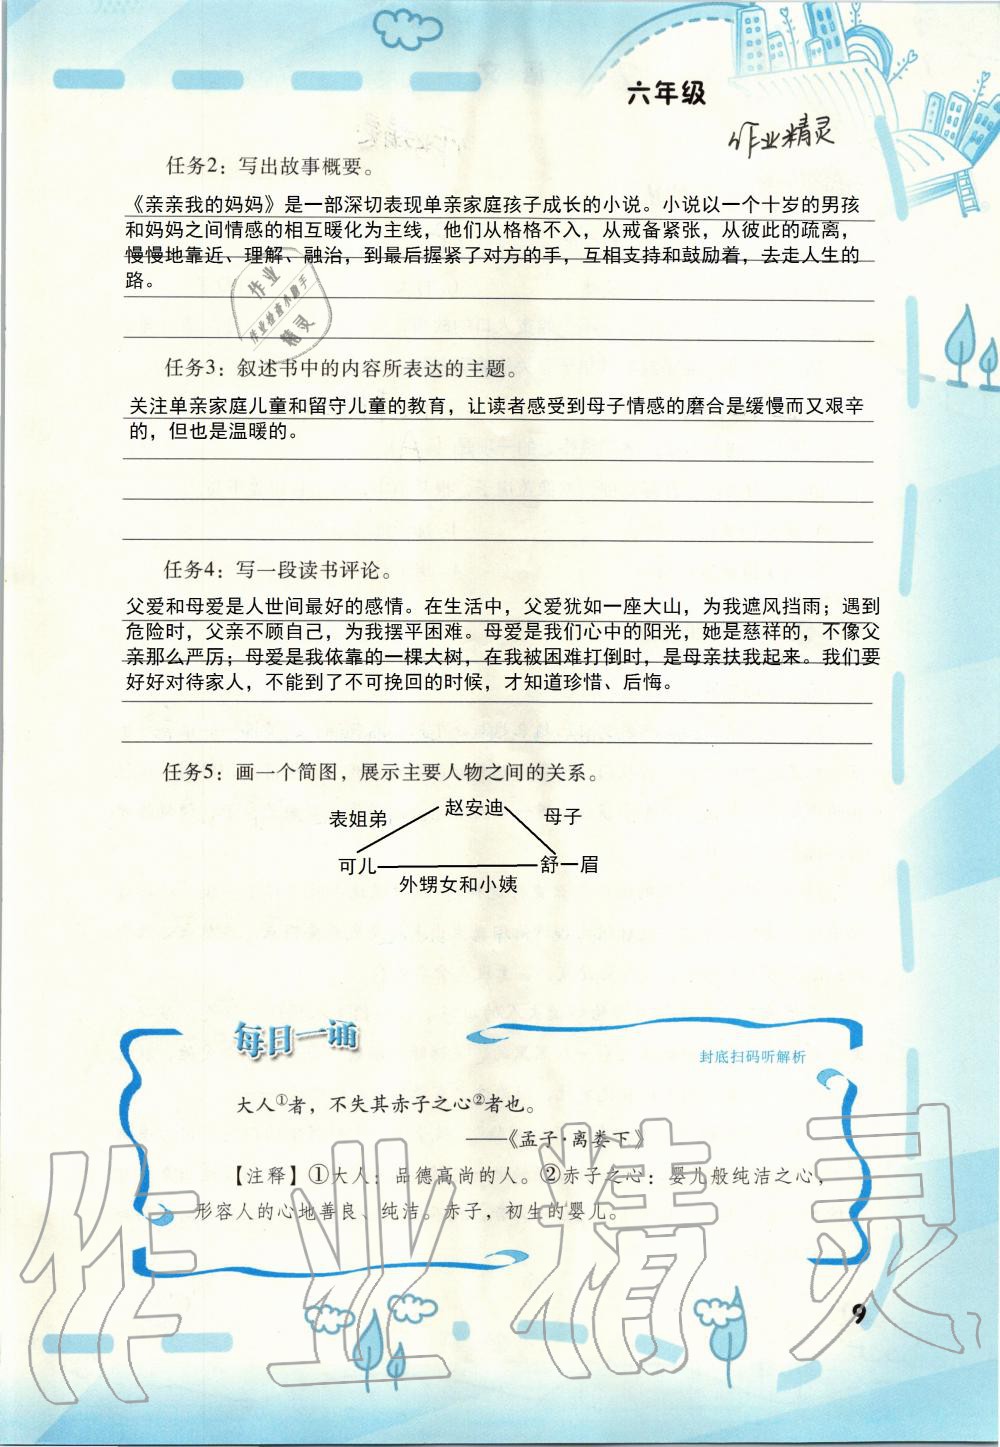 六年级
作业精灵
任务2：写出故事概要。
《亲亲我的妈妈》是一部深切表现单亲家庭孩子成长的小说。小说以一个十岁的男孩
和妈妈之间情感的相互暖化为主线，他们从格格不入，从戒备紧张，从彼此的疏离，
慢慢地靠近、理解、融洽，到最后握紧了对方的手，互相支持和鼓励着，去走人生的
路。
作业
作业检查小助手
精灵
任务3：叙述书中的内容所表达的主题。
关注单亲家庭儿童和留守儿童的教育，让读者感受到母子情感的磨合是缓慢而又艰辛
的，但也是温暖的。
任务4：写一段读书评论。
父爱和母爱是人世间最好的感情。在生活中，父爱犹如一座大山，为我遮风挡雨；遇到
危险时，父亲不顾自己，为我摆平困难。母爱是我们心中的阳光，她是慈祥的，不像父
亲那么严厉；母爱是我依靠的一棵大树，在我被困难打倒时，是母亲扶我起来。我们要
好好对待家人，不能到了不可挽回的时候，才知道珍惜、后悔。
任务5：画一个简图，展示主要人物之间的关系。
表姐弟 赵安迪 母子
可儿 舒一眉
外甥女和小姨
每日一诵
封底扫码听解析
大人①者，不失其赤子之心②者也。
——《孟子·离娄下》
【注释】①大人：品德高尚的人。②赤子之心：婴儿般纯洁之心，
形容人的心地善良、纯洁。赤子，初生的婴儿。
作业精灵
9